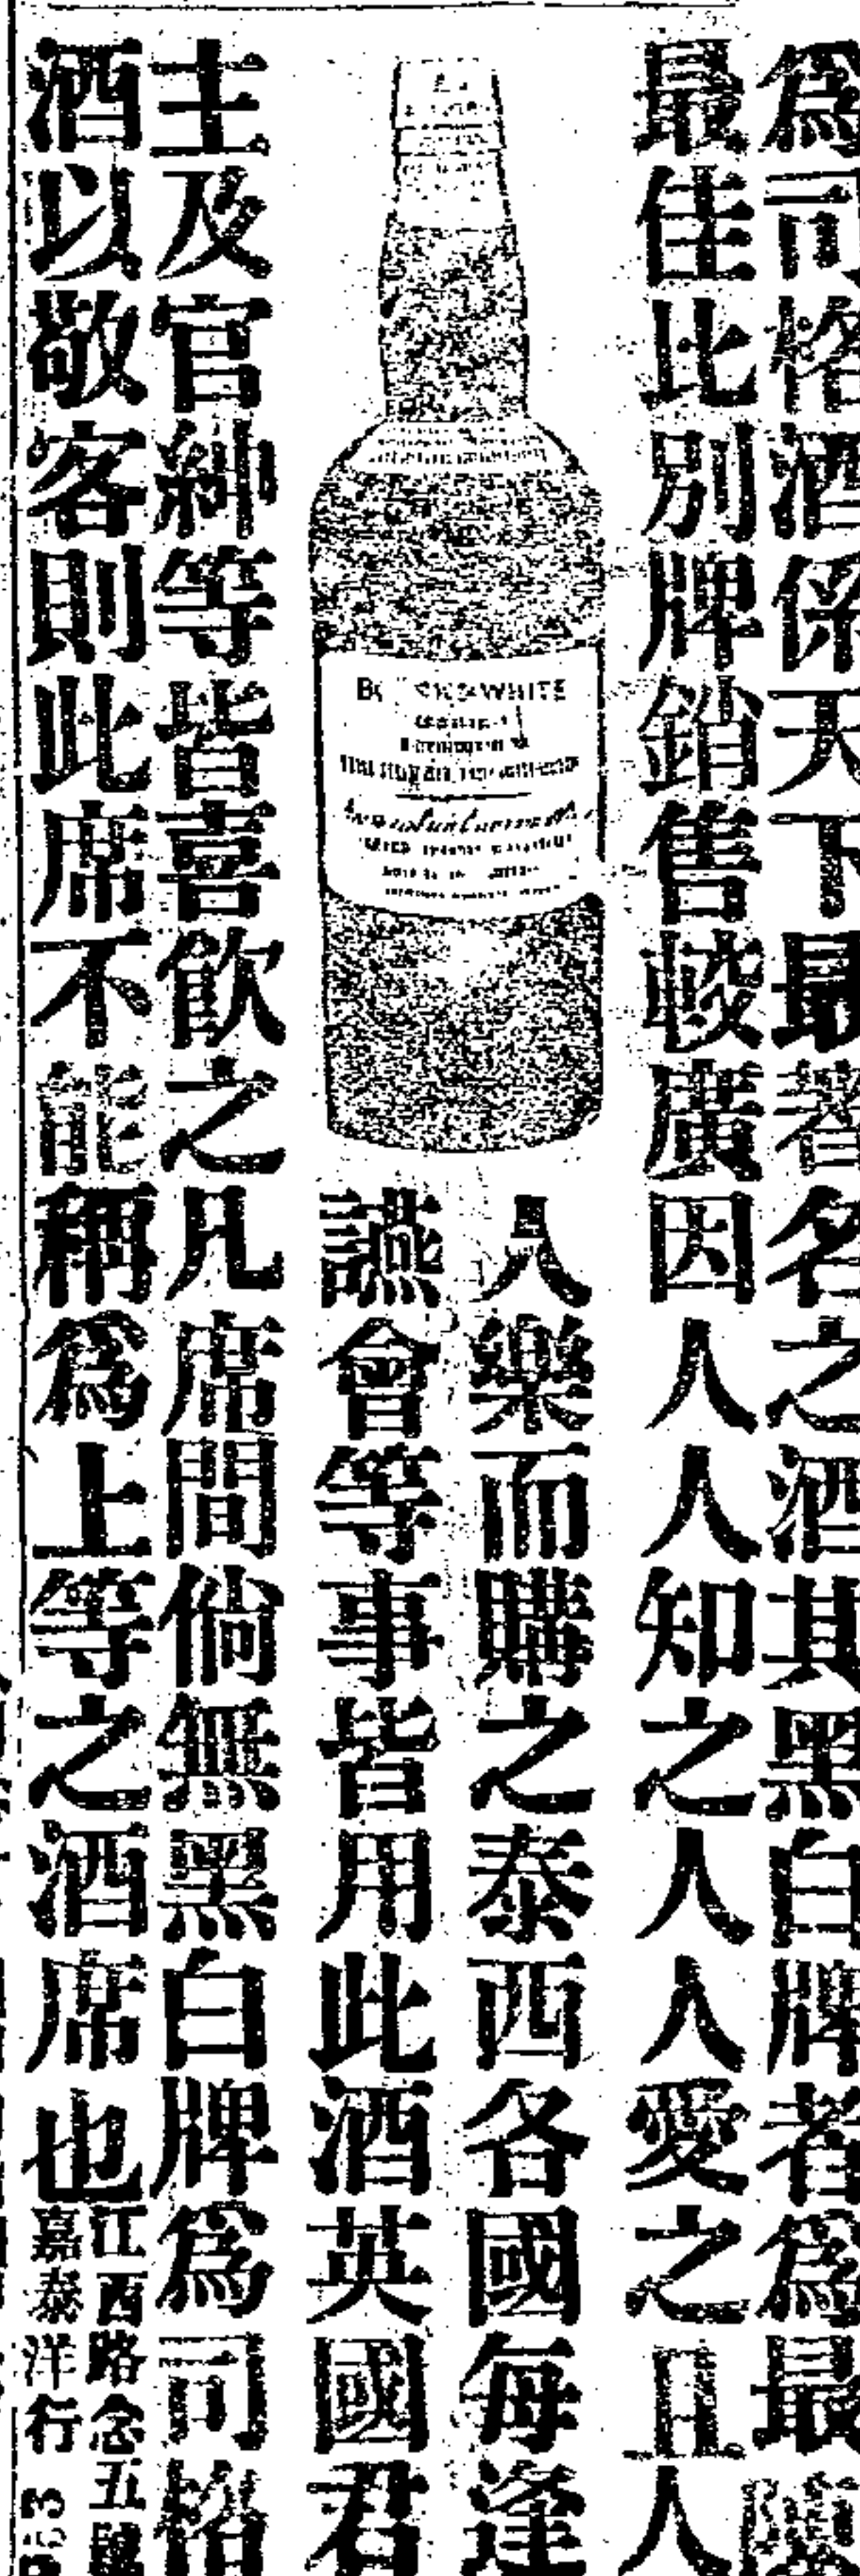 爲司恪酒係天下最著名之酒其黑白牌者爲最
最佳此別牌銷售較廣因人人知之人人愛之且人
人樂而購之泰西各國每逢
讌會等事皆用此酒英國君
主及官紳等皆喜飲之凡席間倘無黑白牌爲司恪
酒以敬客則此席不能稱爲上等之酒席也
江西路念五號
嘉泰洋行
WHITE